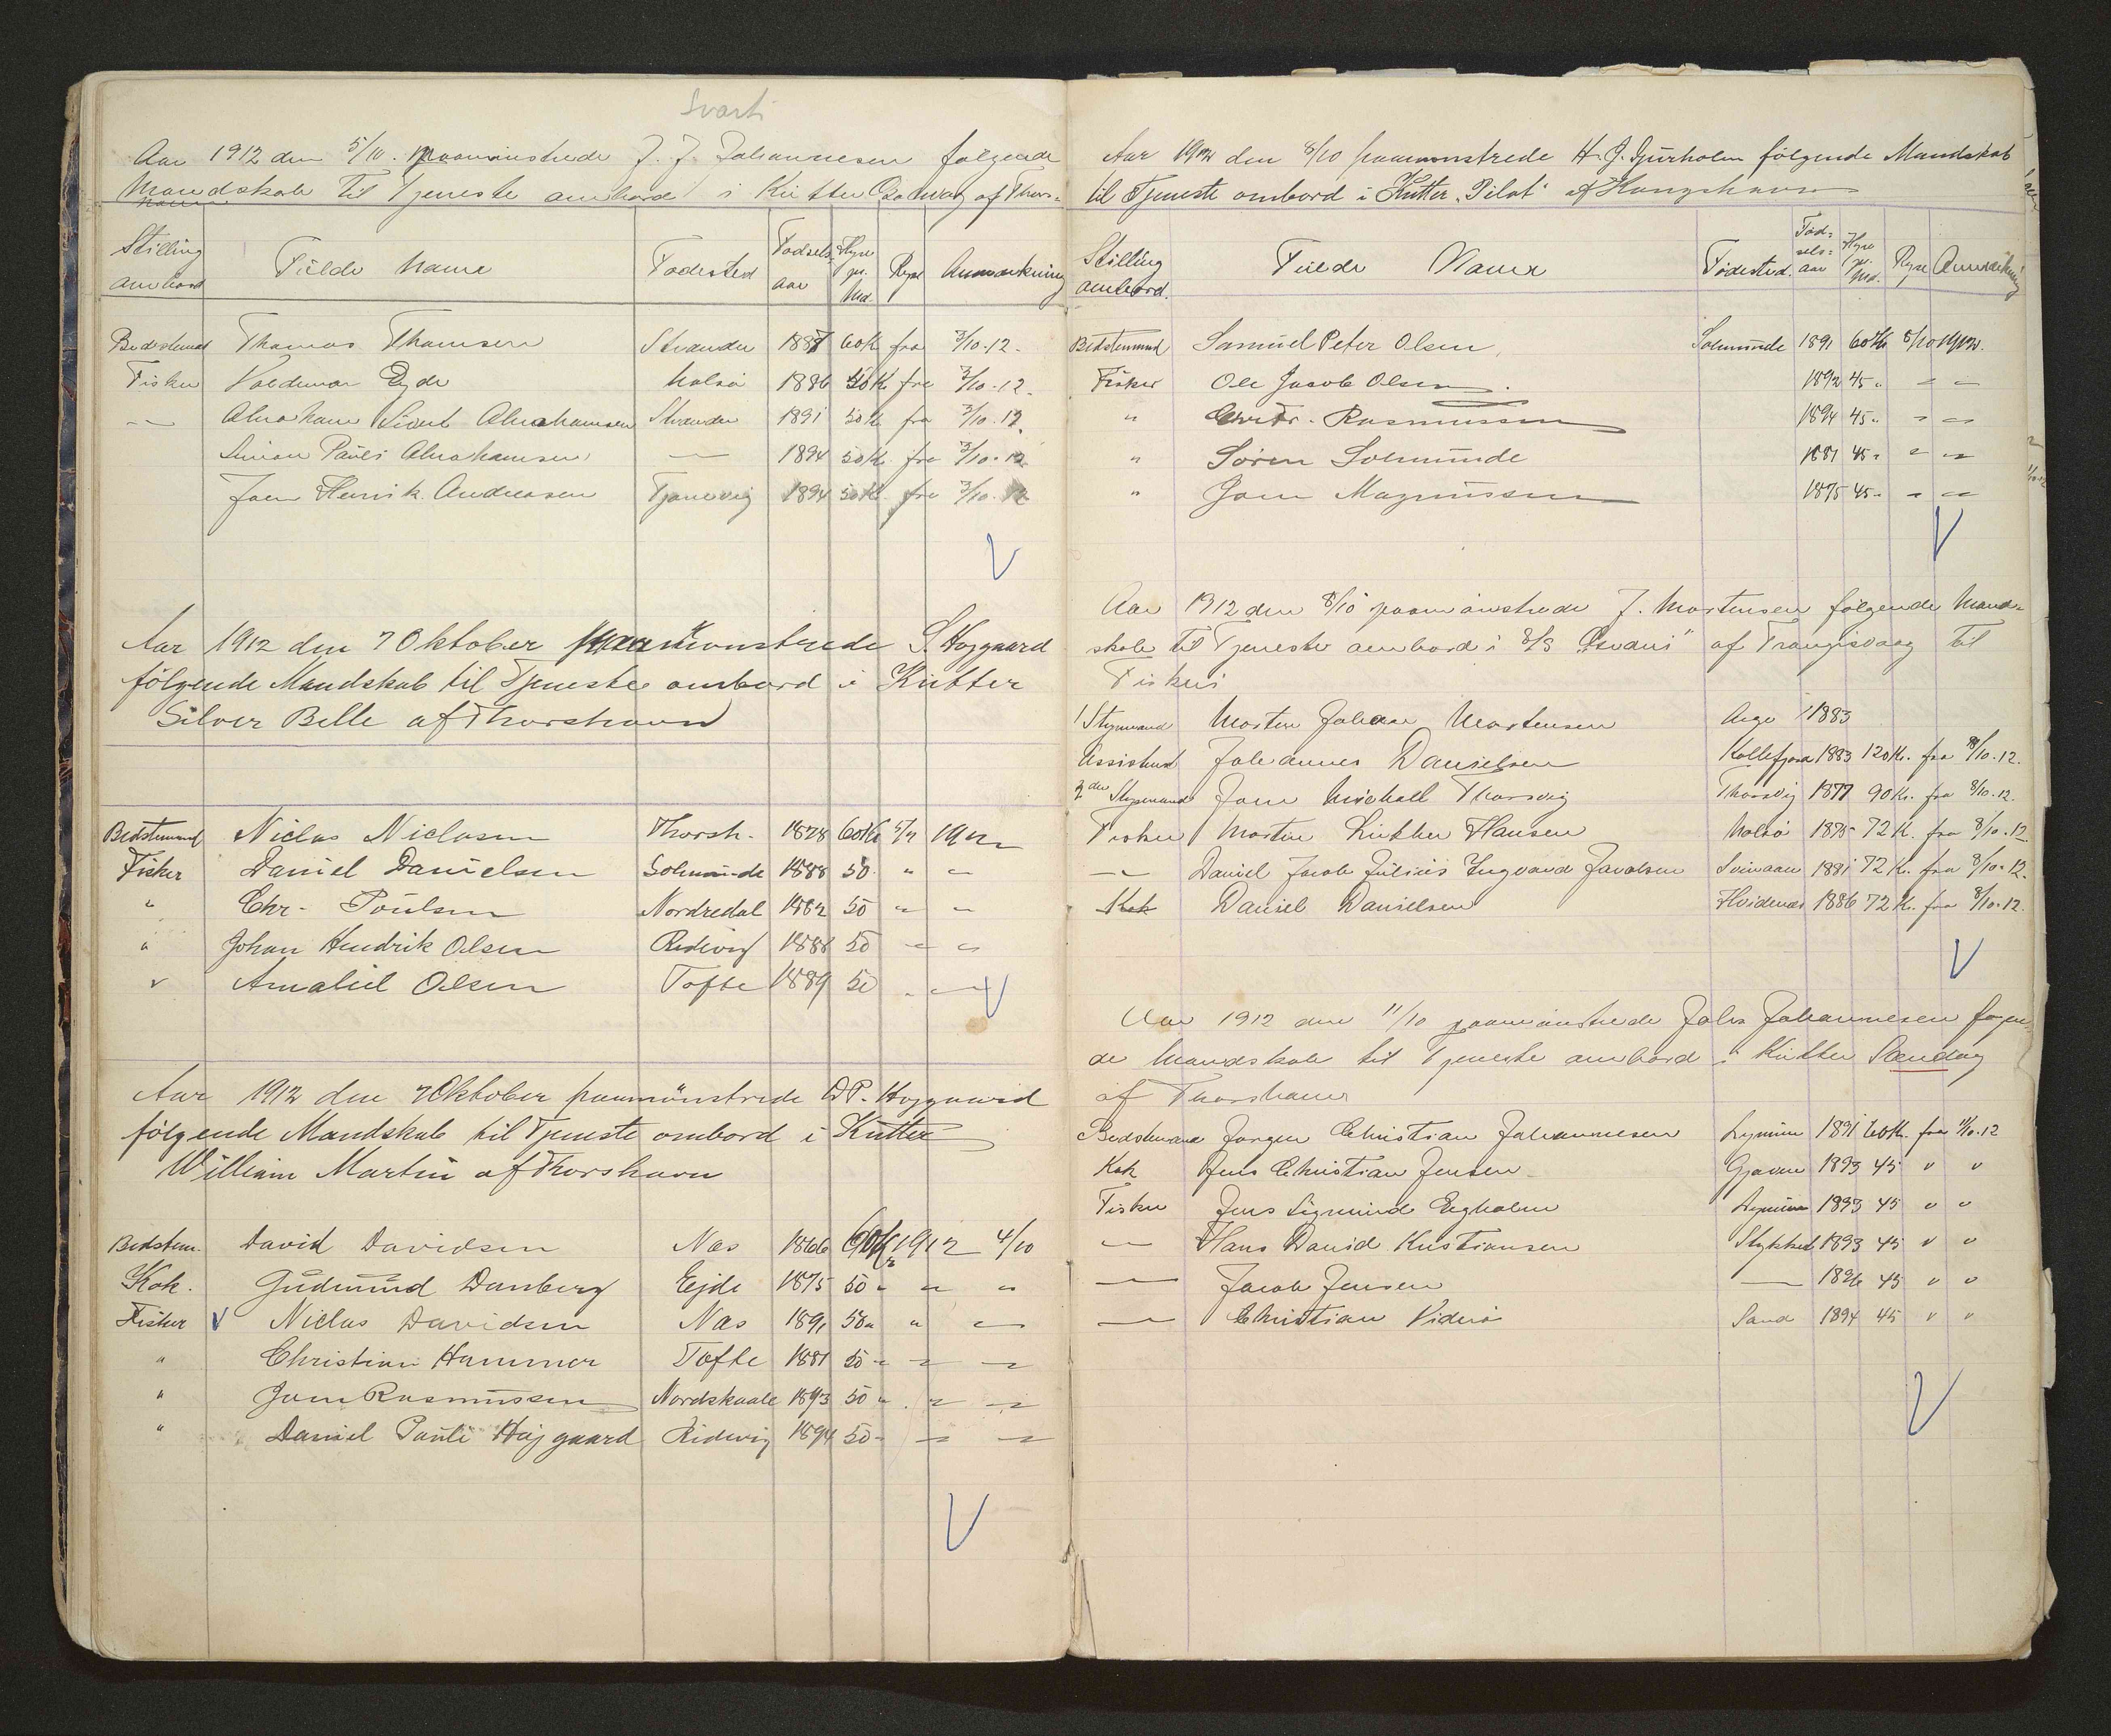 Svart
Aar 1912 den 5/10. paamønstrede J. J. Johannesen følgende
Mandskab Til Tjeneste ombord i Kutter af Thors=
havn
Stilling ombord Fulde Navn Fødested Fødsels aar Hyre pr. Md. Rejse Anmærkning
Bedstemand Thomas Thomsen Strander 1887 60 K fra 3/10-12-
Fisker Valdemar Eyde Nolsø 1886 50 K fra 3/10-12-
-"- Abraham Sivert Abrahamsen Strander 1891 50 K fra 3/10-12.
Simon Pauli Abrahamsen -"- 1894 50 K fra 3/10-12
Joen Henrik Andreasen Tjørnevig 1894 50 K fra 3/10-12
Aar 1912 den 7 Oktober paamönstrede S. Højgaard
følgende Mandskab til Tjeneste ombord i Kutter
Silver Belle af Thorshavn
Bedstemand Niclas Niclasen Thorsh. 1878 60 Kr 5/7 1912
Fisker Daniel Danielsen Solmunde 1888 50 " "
" Chr. Poulsen Nordredal 1882 50 " "
" Johan Hendrik Olsen Ridevig 1888 50 " "
" Amaliel Olsen Tofte 1889 50 " "
Aar 1912 den 7 Oktober paamönstrede D. P. Højgaard
følgende Mandskab til Tjeneste ombord i Kutter
William Martin af Thorshavn
Bedstem. David Davidsen Næs 1866 60 Kr 1912 4/10
Kok. Gudmund Danberg Ejde 1875 50 " " "
Fisker Niclas Davidsen Næs 1891 50 " " "
" Christian Hammer Tofte 1881 50 " " "
" Joen Rasmussen Nordskaale 1893 50 " " "
" Daniel Pauli Højgaard Ridevig 1894 50 " " "
Aar 1912 den 8/10 paamönstrede H. J. Djurholm følgende Mandskab
til Tjeneste ombord i Kutter "Pilot" af Kongshavn
Stilling ombord. Fulde Navn Fødested. Fød= sels= aar Hyre pr. Md. Rejse Anmærkning
Bedstemand Samuel Peter Olsen, Solmunde 1891 60 Kr 8/10 1912.
Fisker Ole Jacob Olsen. 1892 45 " " "
" Chr. Fr. Rasmussen 1894 45 " " "
" Sören Solmunde 1881 45 " " "
" Joen Magnussen 1875 45 " " "
Aar 1912 den 8/10 paamønstrede J. Mortensen følgende Mand=
skab til Tjeneste ombord i S/S af Trangisvaag til
Fiskeri
1 Styrmand Morten Johan Mortensen Arge 1883
Assistent Johannes Danielsen Kollefjord 1883 120 Kr. fra 8/10-12.
2den Styrmand Joen Michael Thorsvig Thorsvig 1877 90 Kr. fra 8/10-12.
Fisker Morten Lützhen Hansen Nolsø 1875 72 K. fra 8/10-12
-"- Daniel Jacob Julius Ingvard Jacobsen Svinaa 1881 72 K. fra 8/10-12.
Kok Daniel Danielsen Hvidenæs 1886 72 K. fra 8/10-12.
Aar 1912 den 11/10 paamønstrede Johs Johannesen følgen=
de Mandskab til Tjeneste ombord i Kutter
af Thorshavn
Bedstemand Jørgen Christian Johannesen Lynum 1891 60 Kr. fra 11/10-12
Kok Jens Christian Jensen Gjov 1893 45 " "
Fisker Jens Sigmund Egholm Lynum 1893 45 " "
-"- Hans David Kristiansen Stykket 1893 45 " "
-"- Jacob Jensen -"- 1896 45 " "
-"- Christian Viderø Sand 1894 45 " "